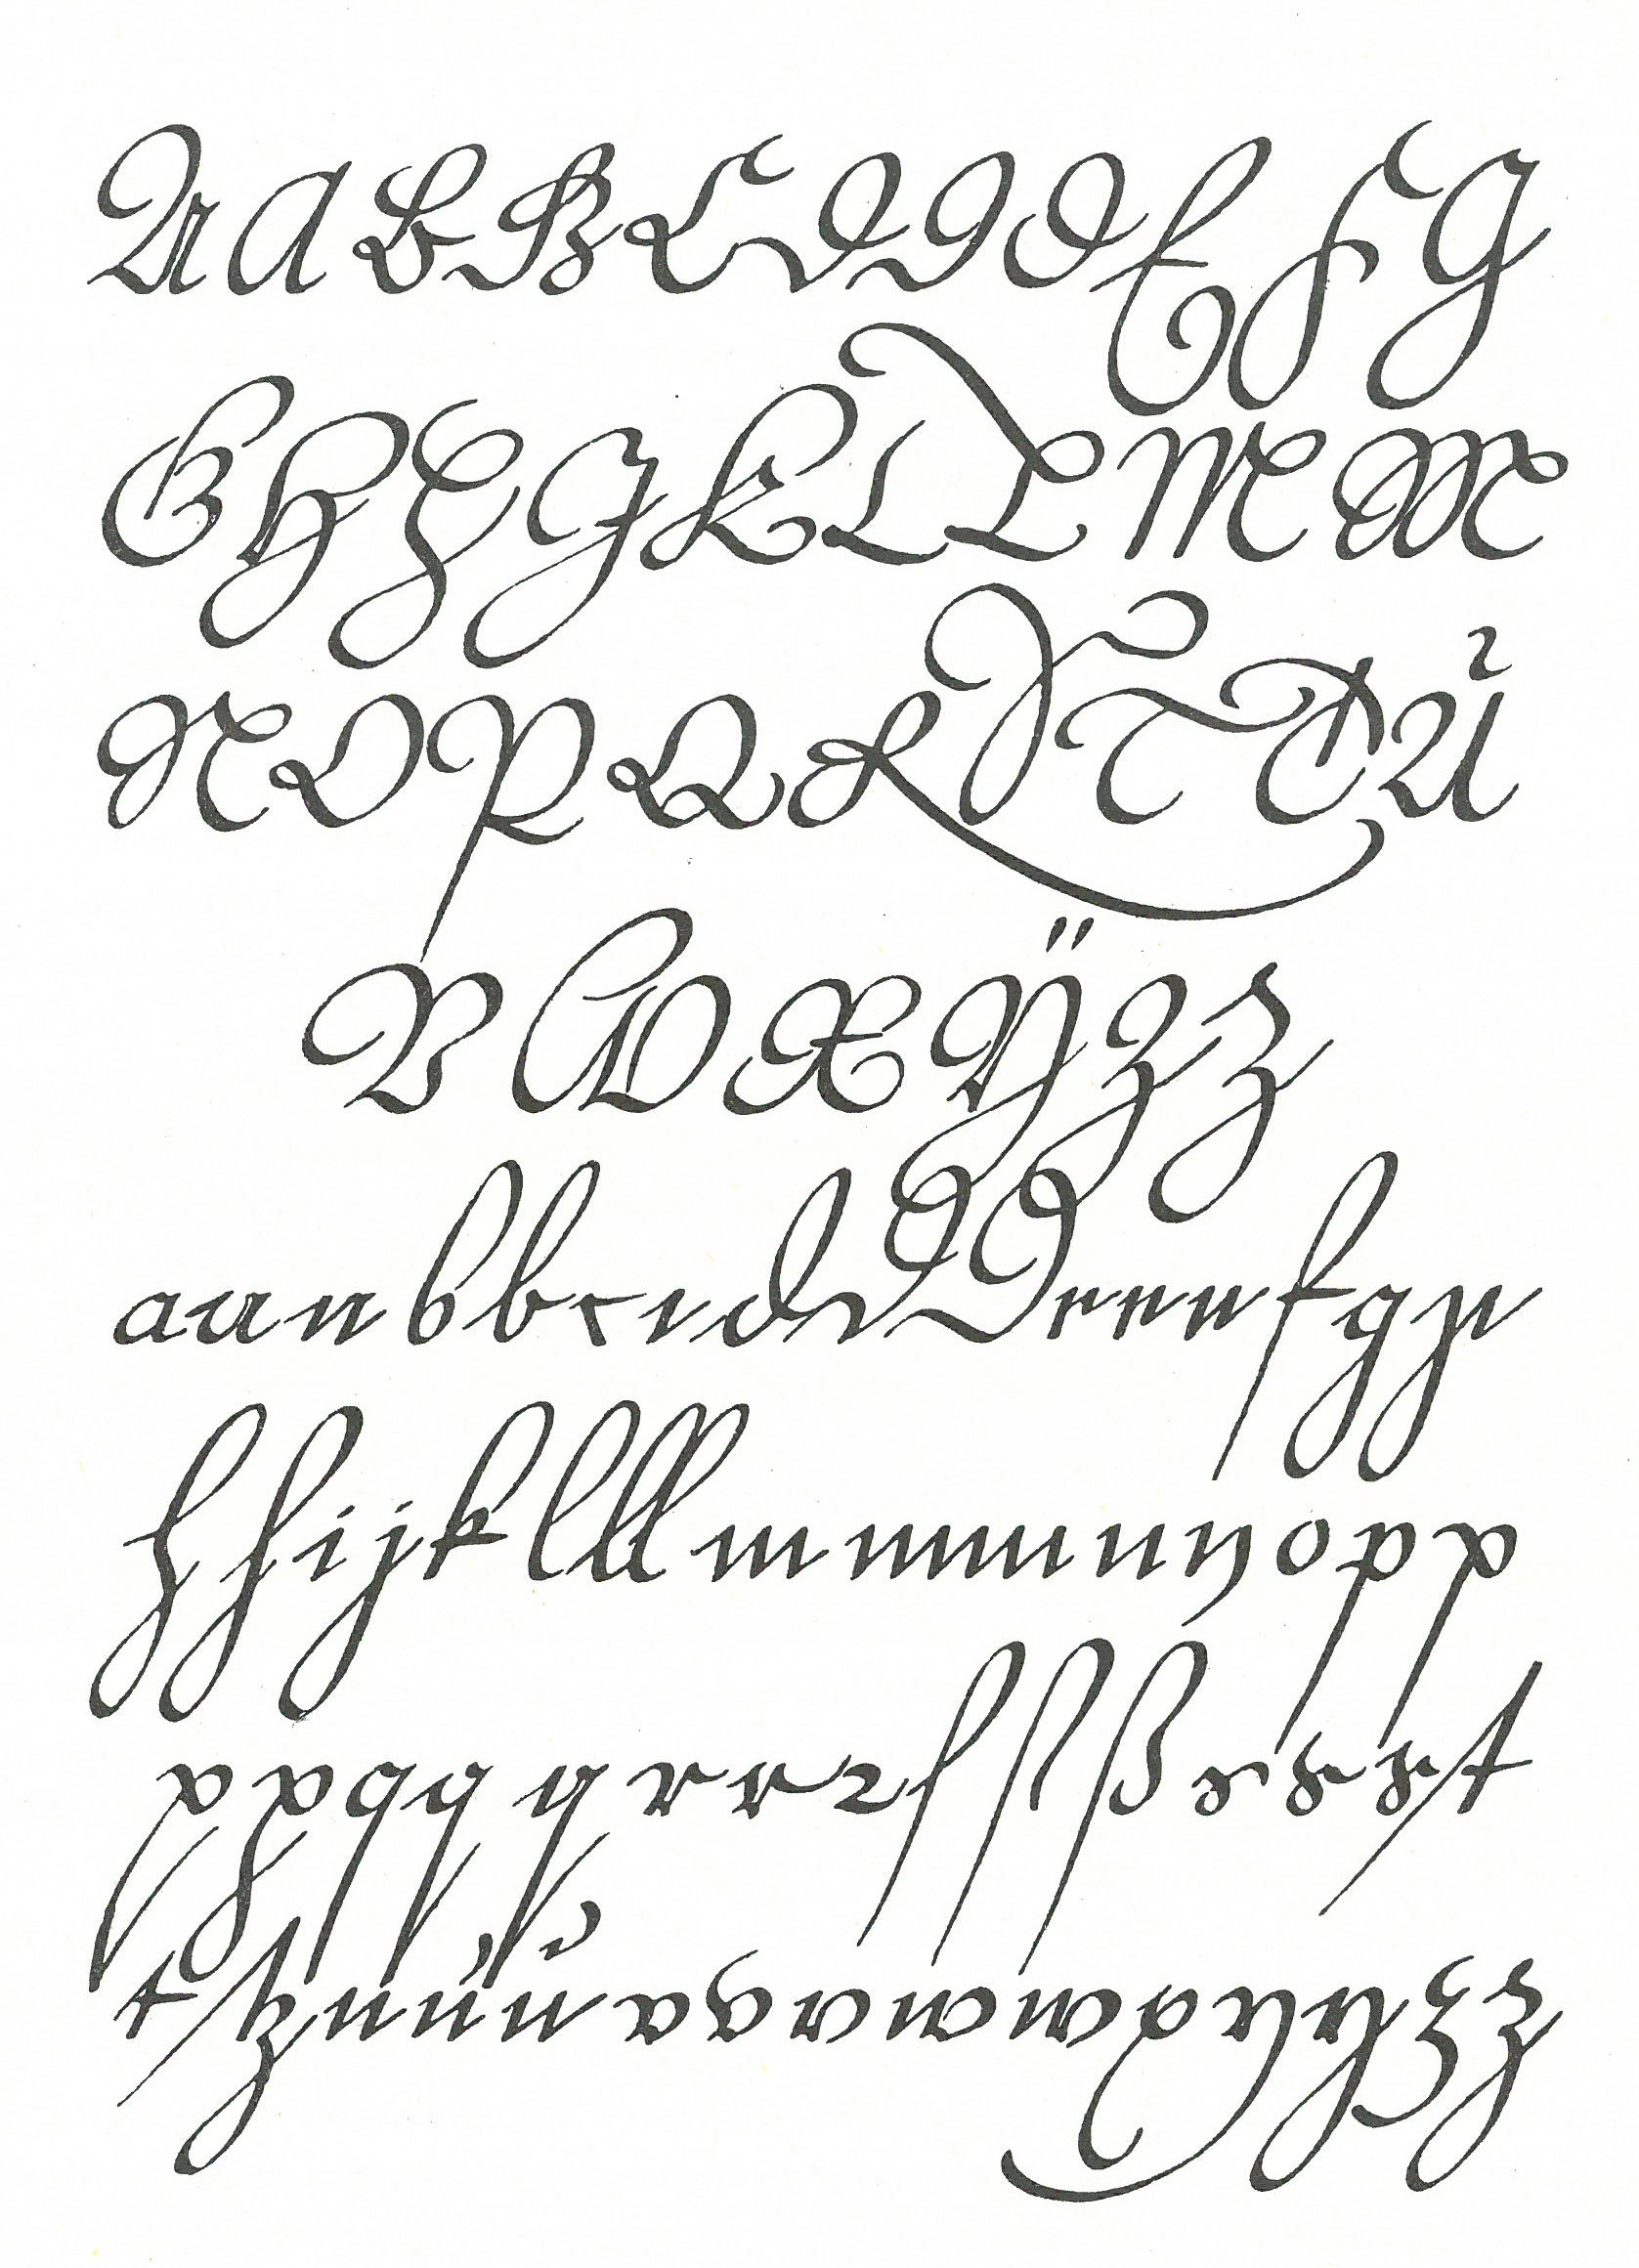 A A B B C D D D E F G
G H H J K L L M M
N O P Q R S T T Ü
V W X Ÿ Z Z
a a a b b c c d d d e e e f g g
h h i j k l ll m m m n n o p p
p p q q q r r r ſ ſſ ß s s s ſt
ſt tz u u ü v v v w w x y y z z